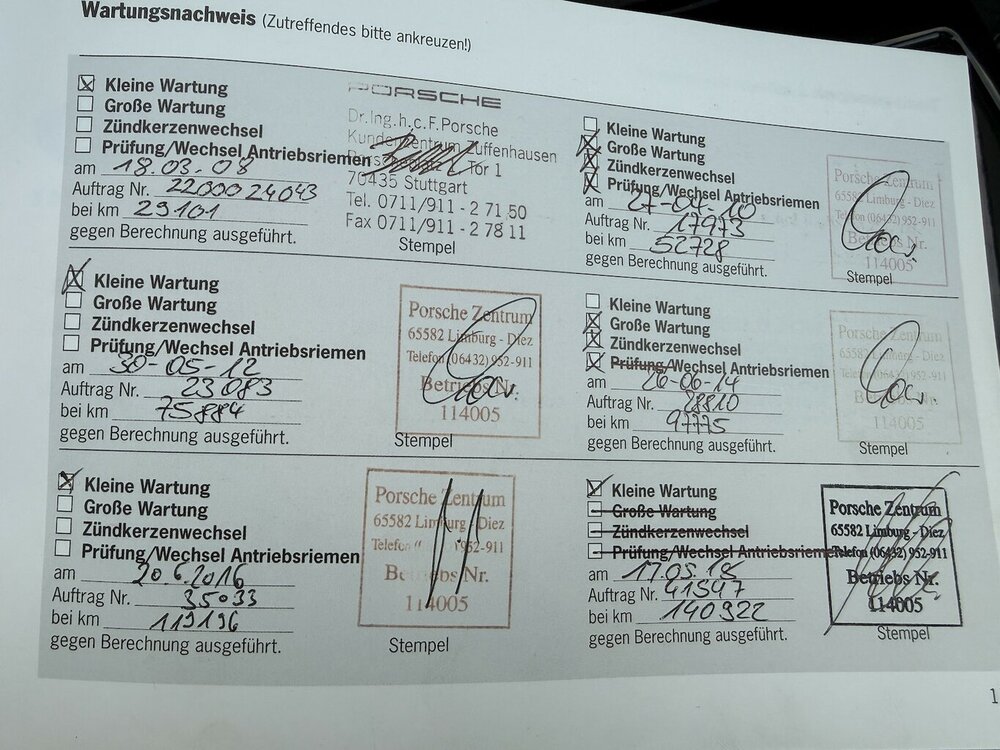 Wartungsnachweis (Zutreffendes bitte ankreuzen!)
Kleine Wartung
Große Wartung
Zündkerzenwechsel
Prüfung/Wechsel Antriebsriemen
am 18.03.08
Auftrag Nr. 2200024043
bei km 29101
gegen Berechnung ausgeführt.
PORSCHE
Dr.Ing.h.c.F.Porsche
Kundenzentrum Zuffenhausen
Tor 1
70435 Stuttgart
Tel. 0711/911 - 2 71 50
Fax 0711/911 - 2 78 11
Stempel
Kleine Wartung
Große Wartung
Zündkerzenwechsel
Prüfung/Wechsel Antriebsriemen
am 27-04-10
Auftrag Nr. 17973
bei km 52728
gegen Berechnung ausgeführt.
Porsche Zentrum
65582 Limburg - Diez
Telefon (06432) 952-911
Betriebs Nr.
114005
Stempel
Kleine Wartung
Große Wartung
Zündkerzenwechsel
Prüfung/Wechsel Antriebsriemen
am 30-05-12
Auftrag Nr. 23083
bei km 75884
gegen Berechnung ausgeführt.
Porsche Zentrum
65582 Limburg - Diez
Telefon (06432) 952-911
Betriebs Nr.
114005
Stempel
Kleine Wartung
Große Wartung
Zündkerzenwechsel
Prüfung/Wechsel Antriebsriemen
am 26-06-14
Auftrag Nr. 28810
bei km 97775
gegen Berechnung ausgeführt.
Porsche Zentrum
65582 Limburg - Diez
Telefon (06432) 952-911
Betriebs Nr.
114005
Stempel
Kleine Wartung
Große Wartung
Zündkerzenwechsel
Prüfung/Wechsel Antriebsriemen
am 20.6.2016
Auftrag Nr. 35033
bei km 119196
gegen Berechnung ausgeführt.
Porsche Zentrum
65582 Limburg - Diez
Telefon 952-911
Betriebs Nr.
114005
Stempel
Kleine Wartung
Große Wartung
Zündkerzenwechsel
Prüfung/Wechsel Antriebsriemen
am 17.05.18
Auftrag Nr. 41547
bei km 140922
gegen Berechnung ausgeführt.
Porsche Zentrum
65582 Limburg - Diez
Telefon (06432) 952-911
Betriebs Nr.
114005
Stempel
1